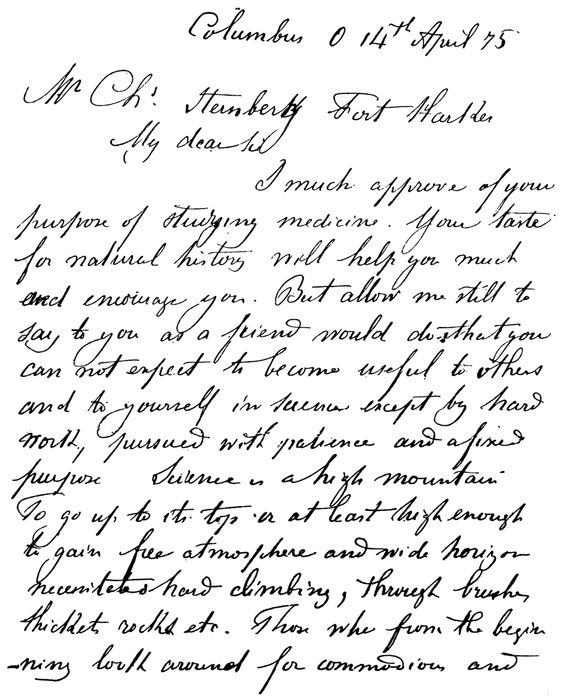 Columbus O 14th April 75
Mr Chs. Sternberg Fort Harker
My dear Sir
I much approve of your
purpose of studying medicine. Your taste
for natural history will help you much
and encourage you. But allow me still to
say to you as a friend would do that you
can not expect to become useful to others
and to yourself in science except by hard
work, pursued with patience and a fixed
purpose Science is a high mountain
To go up to its top or at least high enough
to gain free atmosphere and wide horizon
necessitates hard climbing, through brushes
thickets rocks etc. Those who from the begin
-ning look around for commodious and